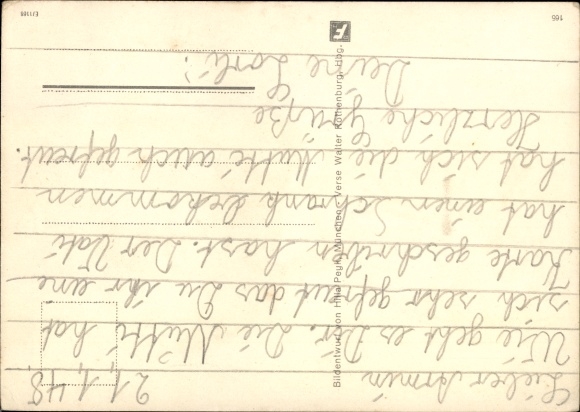 21.1.48.
Lieber Armin
Wie geht es Dir. Die Mutti hat
sich sehr gefreut das Du ihr eine
Karte geschriben hast. Der Vati
hat einen Schrank bekommen
hat sich die Mutti auch gefreut.
Herzliche Grüße
Deine Lorli
Bildentwurf von Hilla Peyk, München - Verse Walter Rothenburg, Hbg.
165